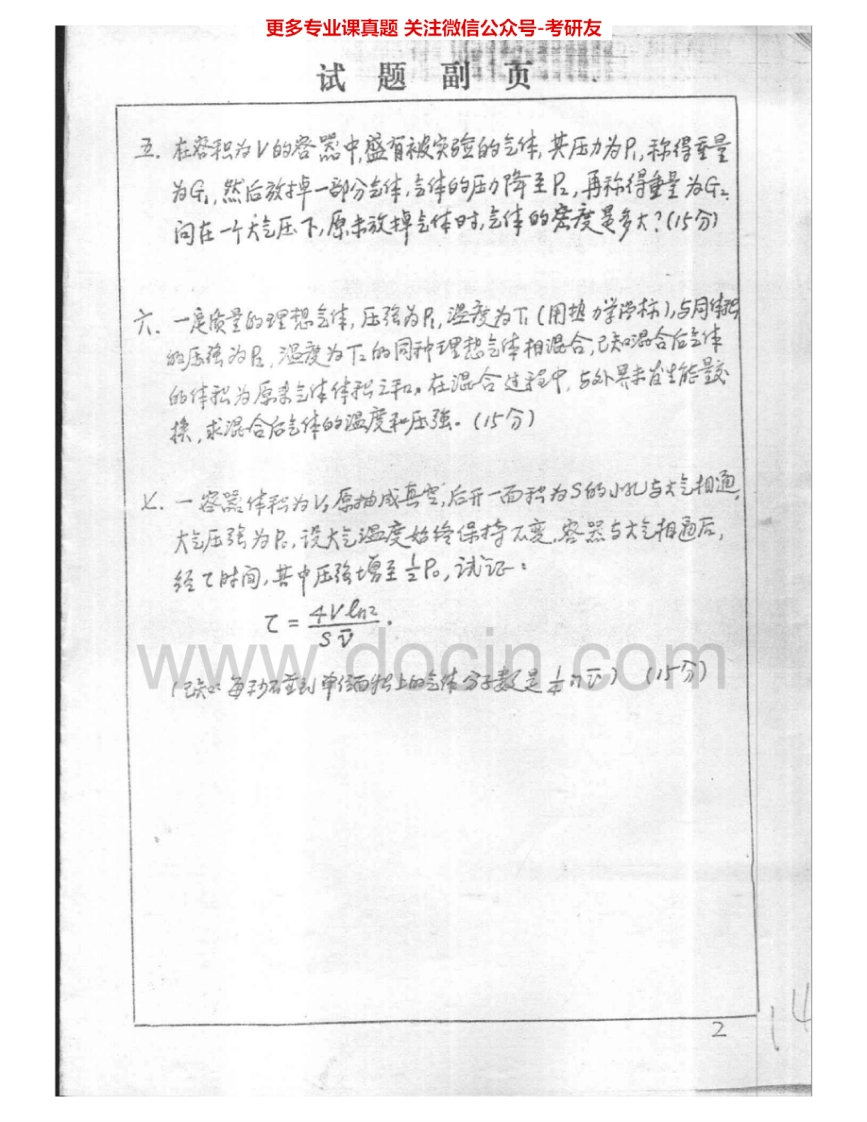 更多专业课真题 关注微信公众号-考研友
试题副页
五. 在容积为V的容器中,盛有被实验的气体,其压力为P₁,称得重量
为G₁,然后放掉一部分气体,气体的压力降至P₂,再称得重量为G₂,
问在一个大气压下,原未放掉气体时,气体的密度是多大?(15分)
六. 一定质量的理想气体,压强为P₁,温度为T₁(用热力学温标),与同体积
的压强为P₂,温度为T₂的同种理想气体相混合,已知混合后气体
的体积为原来气体体积之和。在混合过程中,与外界未发生能量交
换,求混合后气体的温度和压强。(15分)
七. 一容器体积为V,原抽成真空,后开一面积为S的小孔与大气相通,
大气压强为P₀,设大气温度始终保持不变,容器与大气相通后,
经τ时间,其中压强增至½P₀,试证:
τ = 4V ln2 / S v̄ .
www.docin.com
(已知:每秒碰到单位面积上的气体分子数是¼n v̄) (15分)
2
14